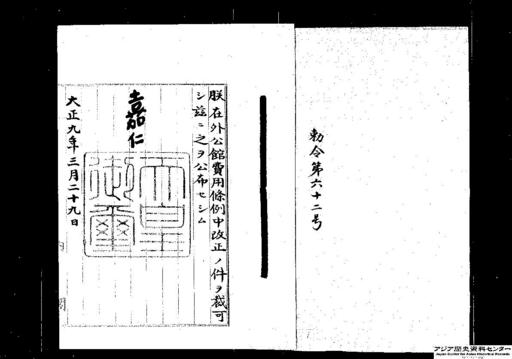 勅令第六十二号
朕在外公館費用條例中改正ノ件ヲ裁可
シ茲ニ之ヲ公布セシム
嘉仁
天皇御璽
大正九年三月二十九日
内閣
アジア歴史資料センター
Japan Center for Asian Historical Records